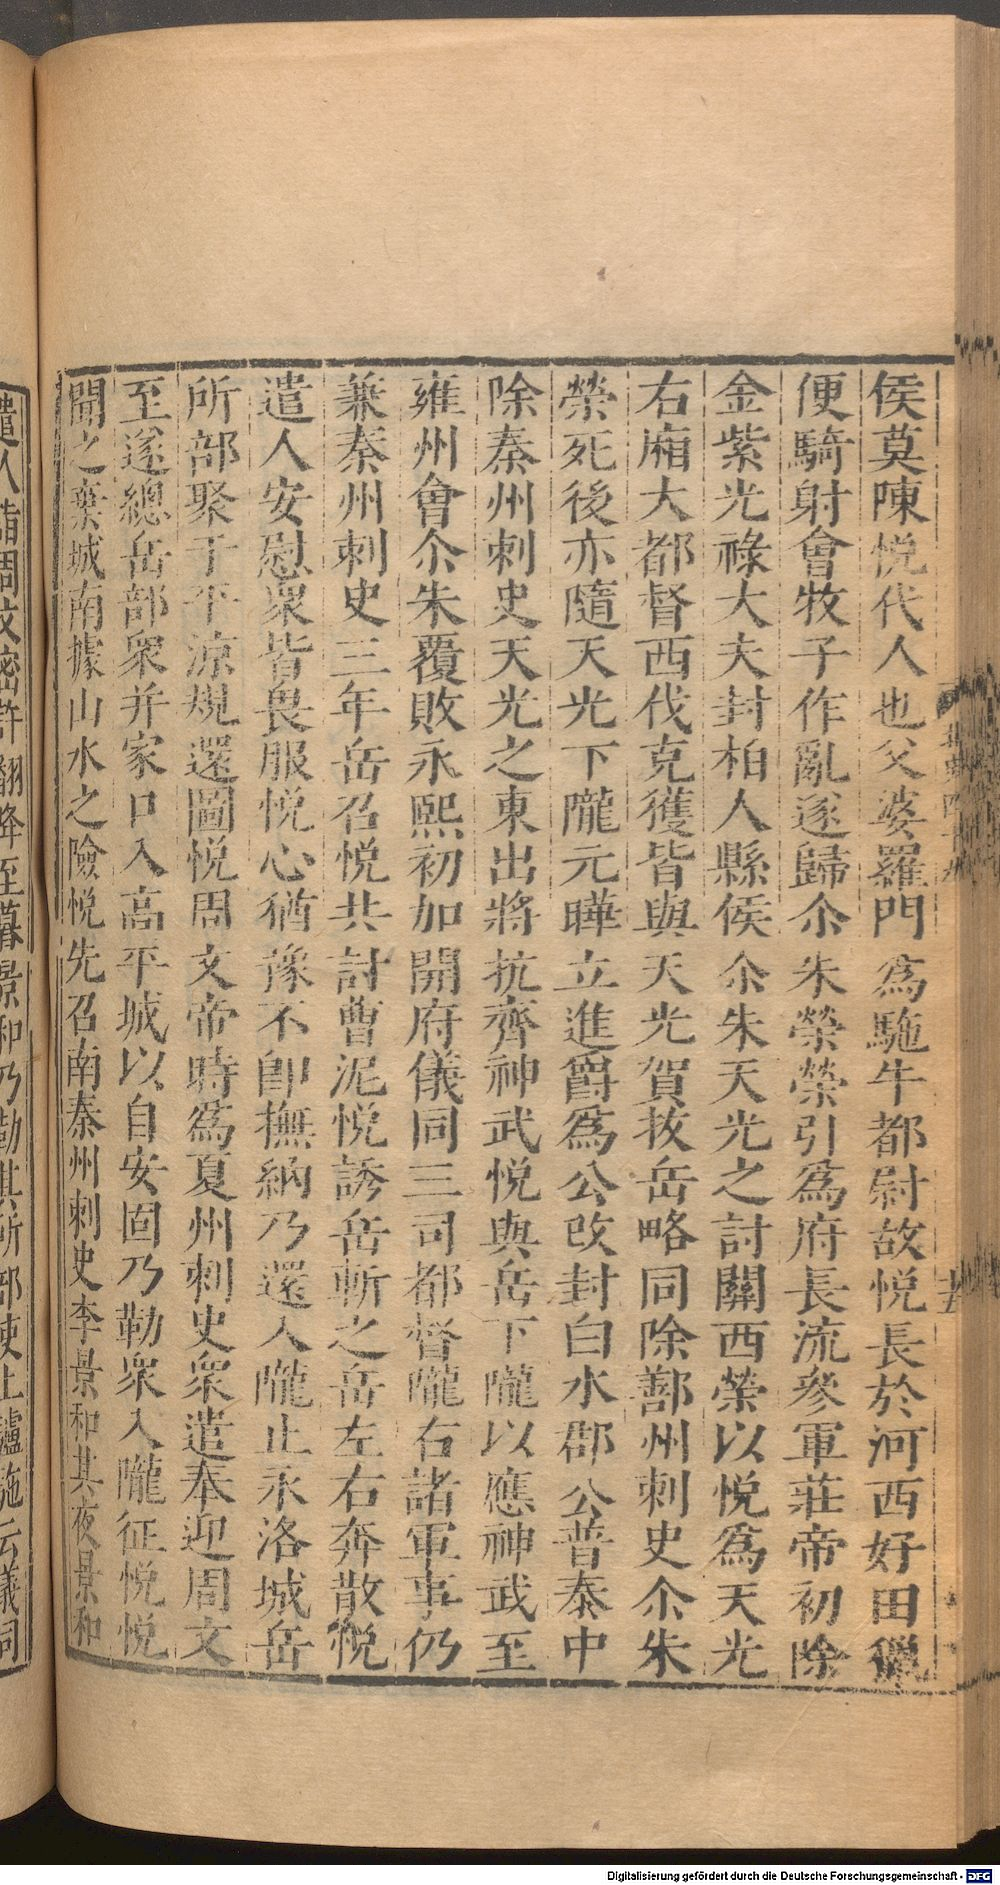 侯莫陳悦代人也父婆羅門爲駞牛都尉故悦長於河西好田獵
便騎射會牧子作亂遂歸尒朱榮榮引爲府長流參軍莊帝初除
金紫光祿大夫封柏人縣侯尒朱天光之討關西榮以悦爲天光
右廂大都督西伐克獲皆與天光賀拔岳略同除鄯州刺史尒朱
榮死後亦隨天光下隴元曄立進爵爲公改封白水郡公普泰中
除秦州刺史天光之東出將抗齊神武悦與岳下隴以應神武至
雍州會尒朱覆敗永熙初加開府儀同三司都督隴右諸軍事仍
兼秦州刺史三年岳召悦共討曹泥悦誘岳斬之岳左右奔散悦
遣人安慰衆皆畏服悦心猶豫不卽撫納乃還入隴止永洛城岳
所部聚于平涼規還圖悦周文帝時爲夏州刺史衆遣奉迎周文
至遂總岳部衆并家口入高平城以自安固乃勒衆入隴征悦悦
聞之棄城南據山水之險悦先召南秦州刺史李景和其夜景和
遣人詣周文密許翻降至暮景和乃勒其所部使上驢駞云儀同
Digitalisierung gefördert durch die Deutsche Forschungsgemeinschaft - DFG